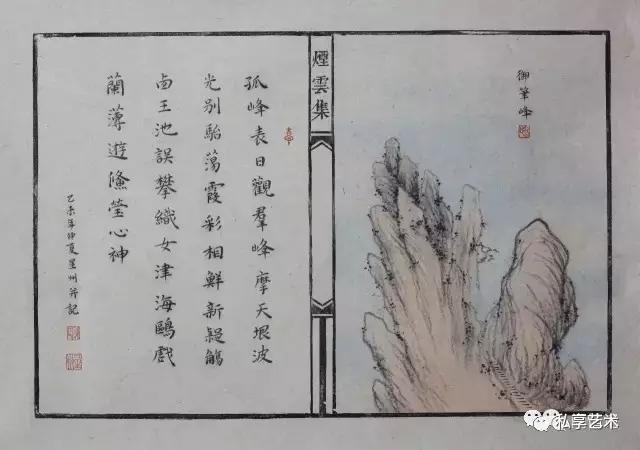 御筆峰
煙雲集
孤峰表日觀羣峰摩天垠波
光別駘蕩霞彩相鮮新疑觴
卤王池誤攀織女津海鷗戲
蘭薄遊鯈瑩心神
乙未年仲夏星州并記
私享艺术